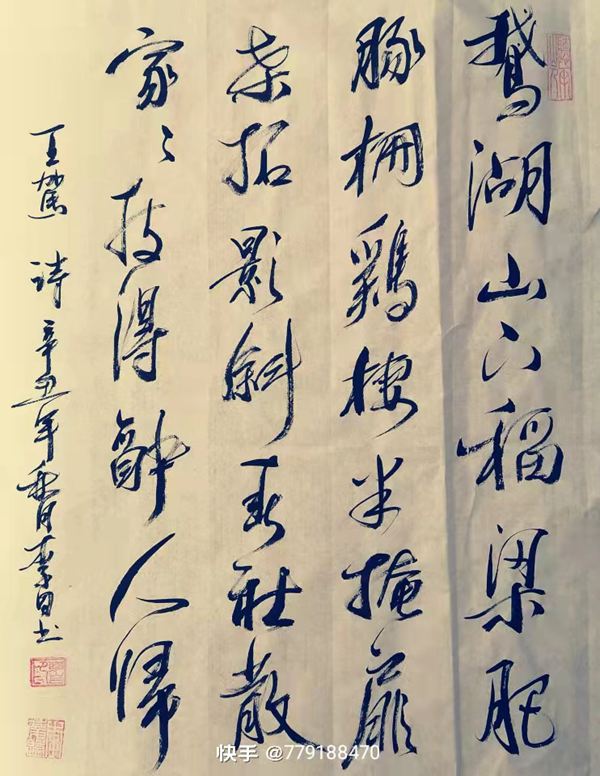 鵝湖山下稻梁肥
豚柵鷄棲半掩扉
桑柘影斜春社散
家〻扶得醉人歸
王駕 诗 辛丑年 月李书
快手 @779188470